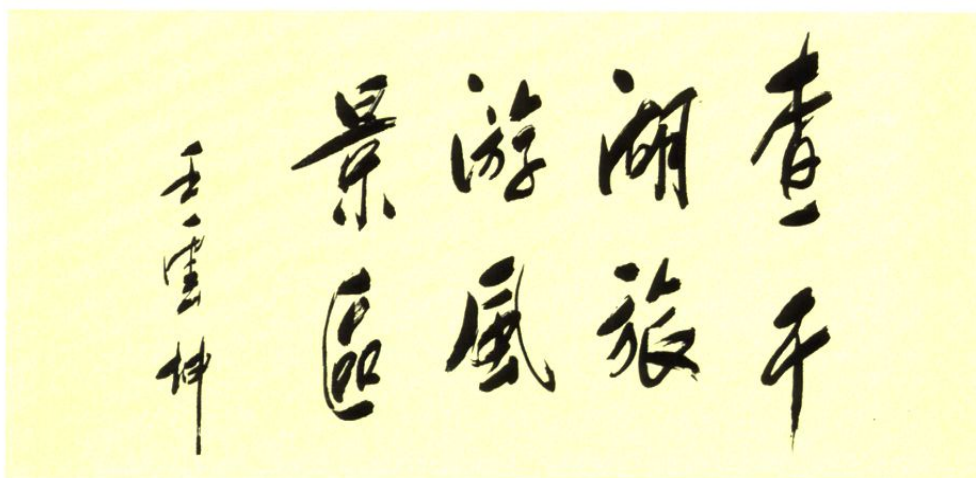 查干
湖旅
游風
景區
王雲坤